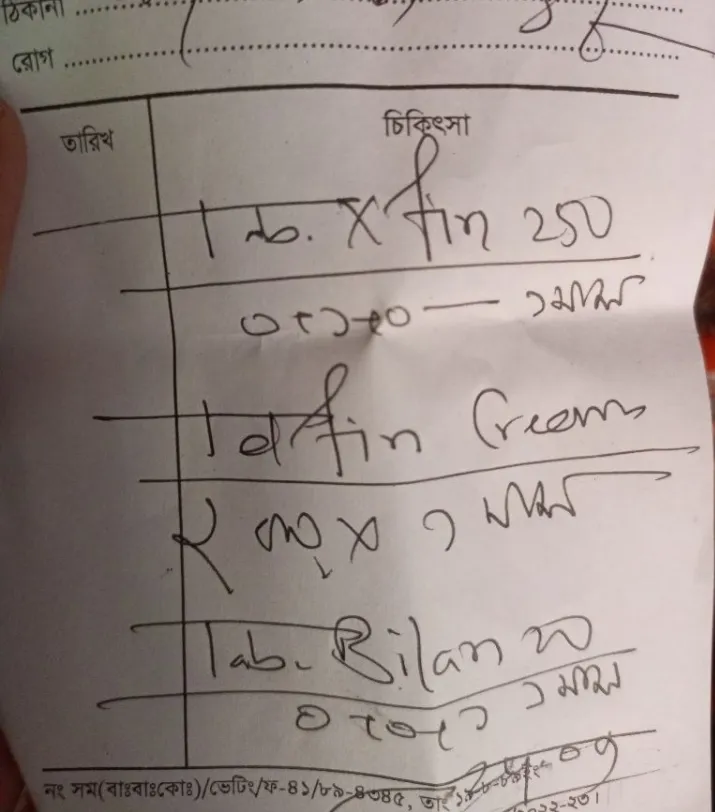 ঠিকানা
রোগ
তারিখ
চিকিৎসা
Tab. Xfin 250
০+১+০ — ১ মাস
Telfin Cream
২ বার x ১ মাস
Tab. Bilan 20
০+০+১ ১ মাস
নং সম(বাঃবাঃকোঃ)/ভেটিং/ফ-৪১/৮৯-৪৩৪৫, তাং
২০২২-২৩।